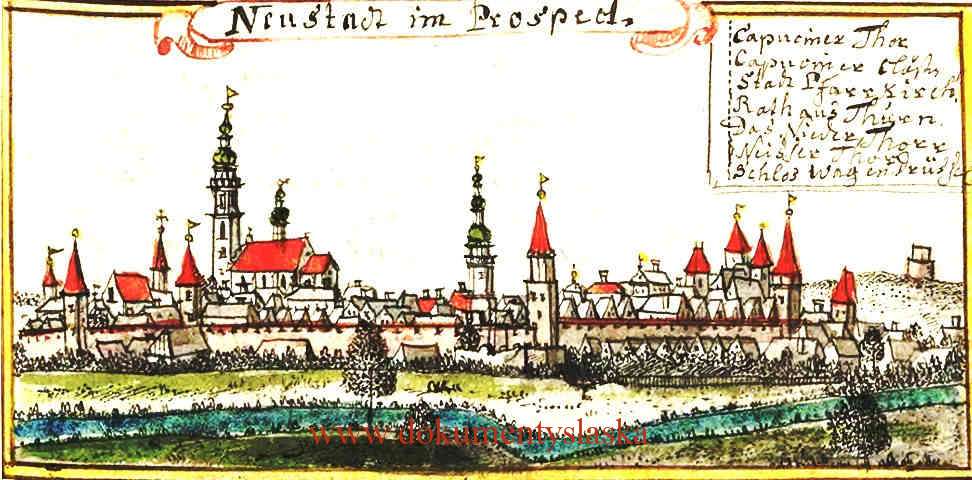 Neustadt im Prospect.
Capuciner Thor
Capuciner Closter
Stadt Pfarr Kirch.
Rathaus Thurn.
Das Nieder Thorr
Neisser Thor
Schlos Wagendrüssel
www.dokumentyslaska